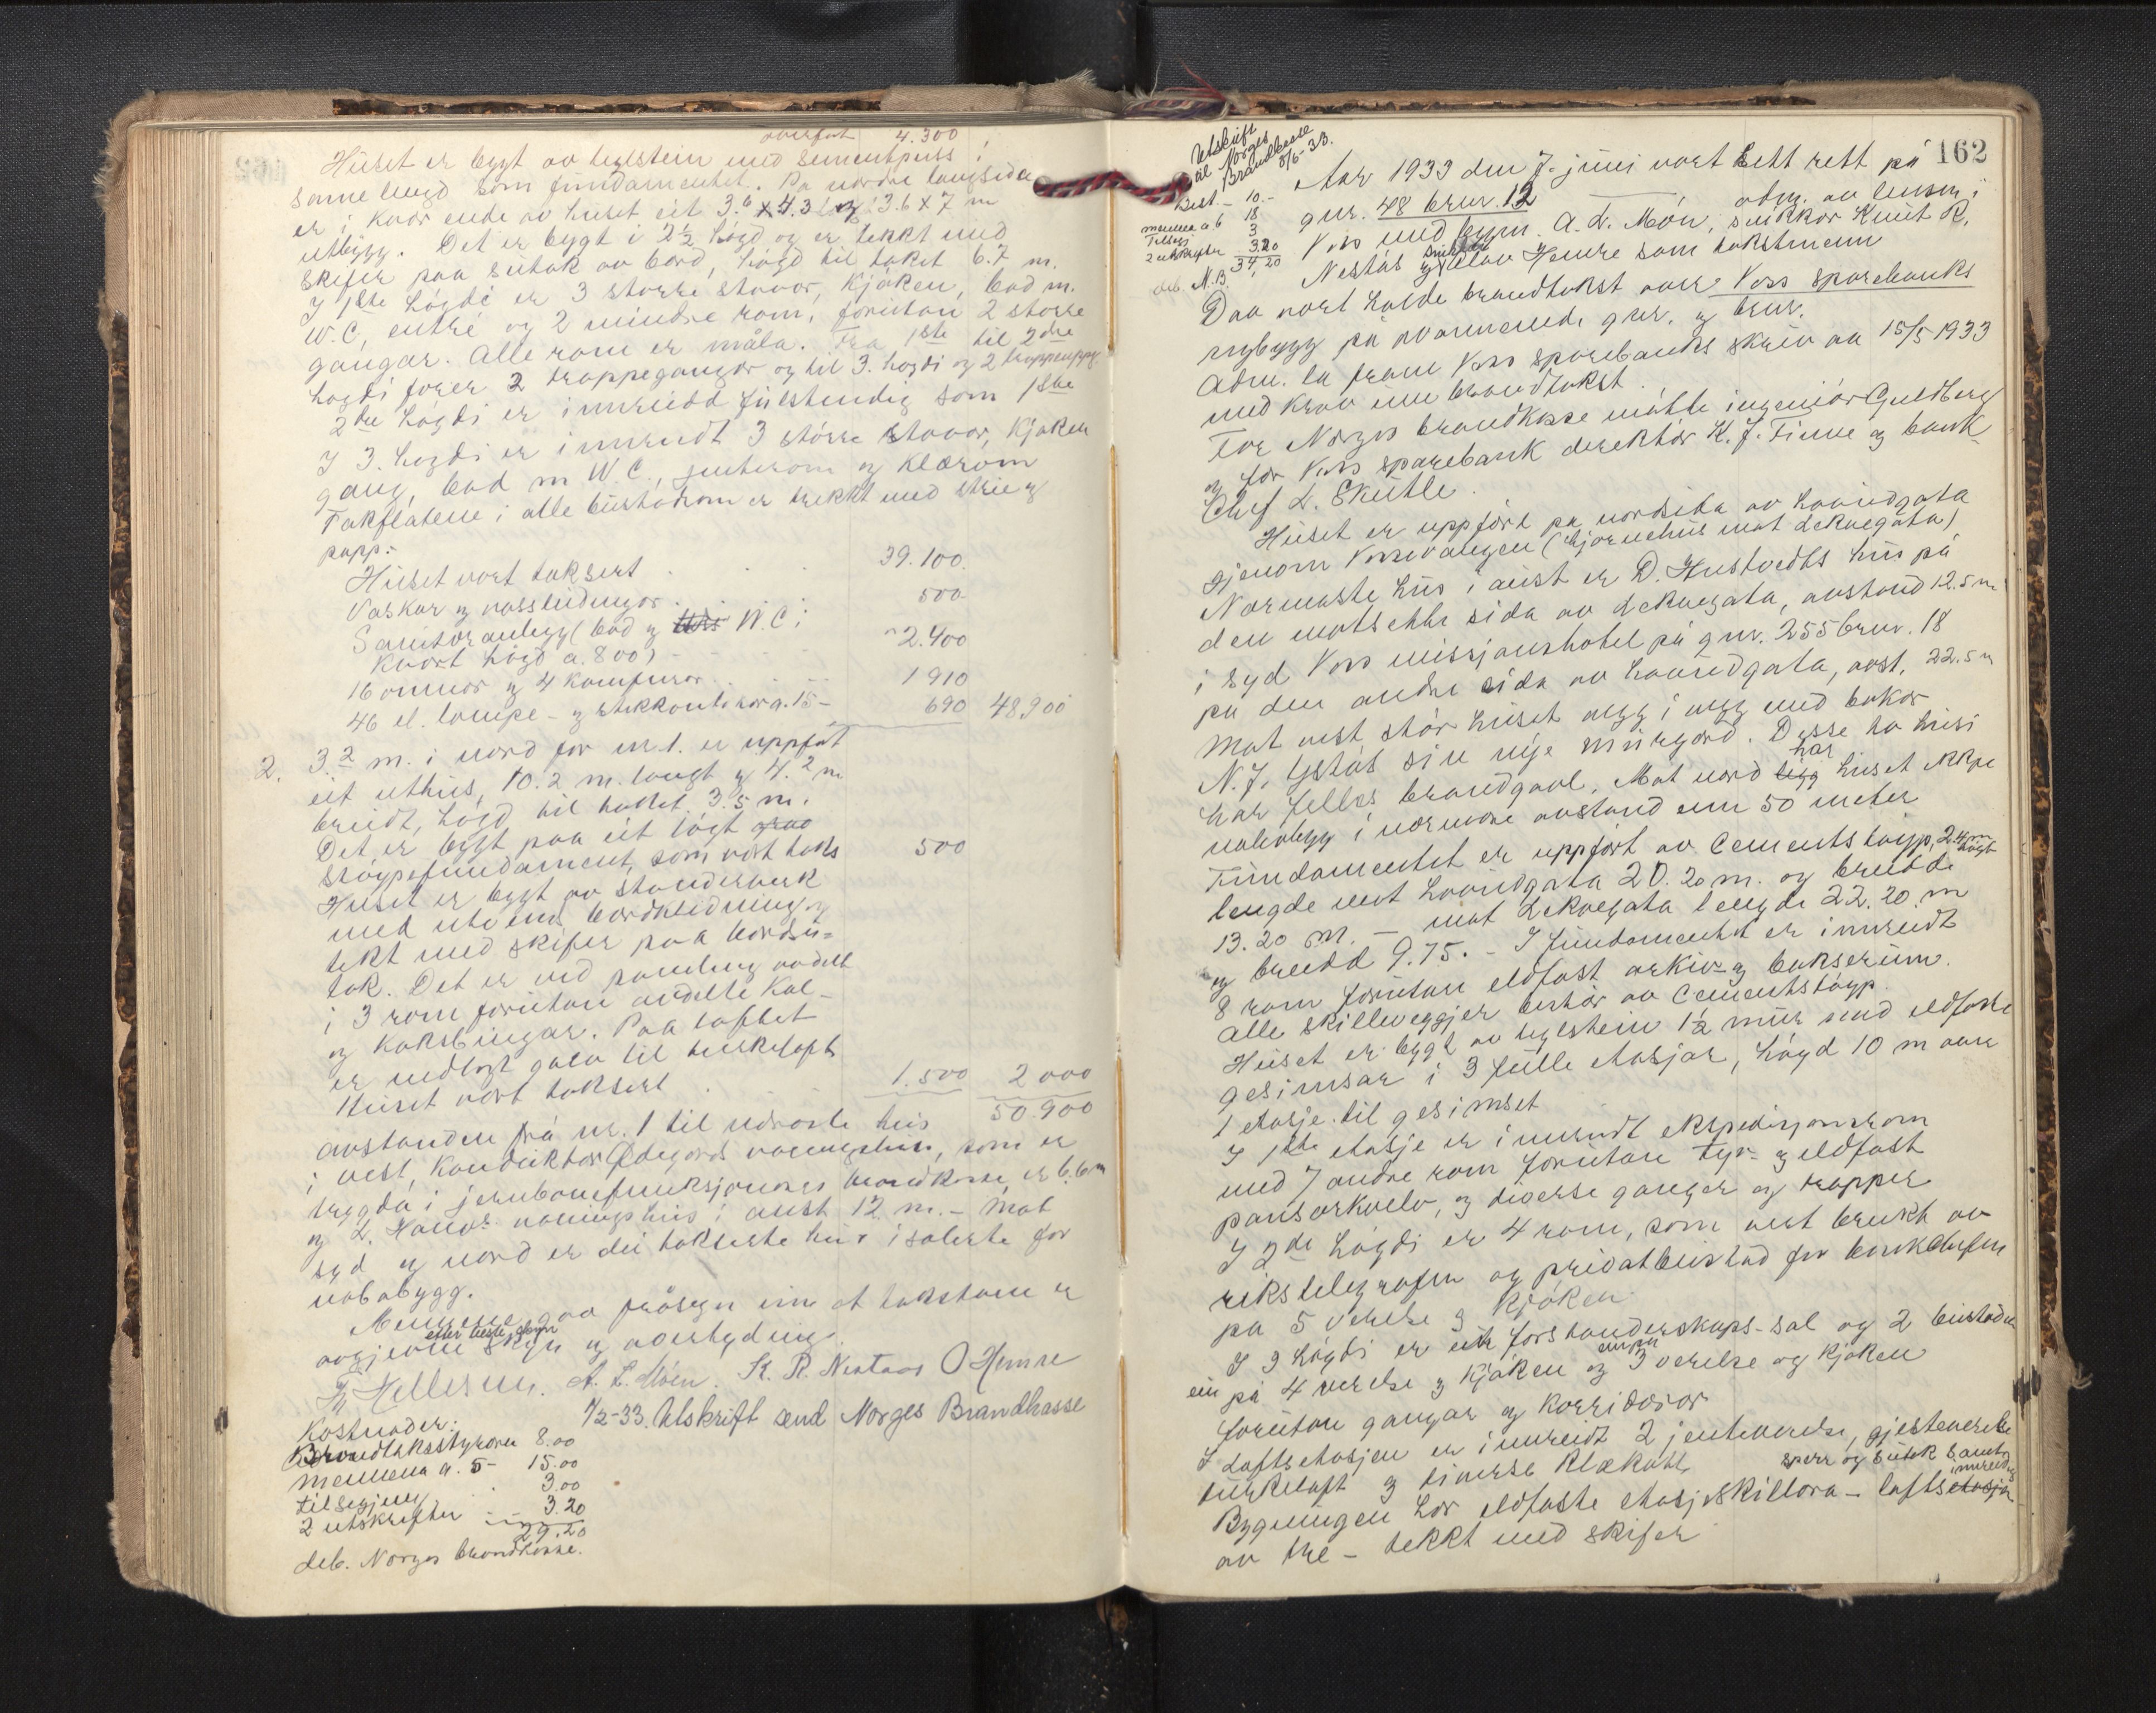 overført 4.300
Huset er bygt av teglstein med sementpuss i
same lengd som fundamentet. Pa nordre langside
er i kvar ende av huset eit 3.6 x 4.3 og 3.6 x 7 m
utbygg. Det er bygt i 2½ høgd og er tekt med
skifer paa sutak av bord, høgd til taket 6.7 m.
I 1ste høgdi er 3 større stovor, kjøken, bad m.
W.C, entré og 2 mindre rom, forutan 2 større
gangar. Alle rom er måla. Fra 1ste til 2dre
høgdi fører 2 trappegangar og til 3. høgdi og 2 trappeuppg.
2dre høgdi er innreidd fulstendig som 1ste
I 3. høgdi er innreidt 3 større stovor, kjøken
gang, bad m W.C., jenterom og klærom
Takflatene i alle bustadrom er trekt med strie og
papp.-
Huset vart taksert 39.100.
Vaskar og vassleidningar 500
Sanitæranlegg (bad og W.C. i
kvart høgd a. 800) 2.400
16 omnar og 4 komfyrar 1910
46 el. lampe- og stikkontaktar a. 15- 690 48,900
2. 3.2 m. i nord for nr. 1. er uppført
eit uthus, 10.2 m. langt og 4.2 m
breidt, høgd til taket 3.5 m.
Det er bygt paa eit lågt
støypefundament, som vart taks 500
Huset er bygt av standerverk
med utvend. bordkledning og
tekt med skifer paa bordsu-
tak. Det er ved paneling avdelt
i 3 rom forutan avdelte kol-
og koksbingar. Paa loftet
er nedlagt golv til turkeloft
Huset vart taksert 1.500 2000
50.900
Avstanden frå nr. 1 til næraste hus
i vest, Konduktør Ødegårds vaaningshus, som er
trygda i jernbanefunksjonæres brandkasse, er 6.6 m
og L. Hauor vaaningshus i aust 12 m. - Mot
syd og nord er dei takserte hus isolerte for
nabobygg.
Mennene gav frásegn um at takstane er
avgjevne etter beste skjøn og overtyding.
Hellesnes. A. L. Móen. K. R. Nestaas O Hemre
7/2-33. Utskrift send Norges Brandkasse
Kostnader:
Brandtakststyraren 8.00
Mennena a. 5- 15.00
tilsegjing 3.00
2 utskrifter 3.20
29.20
deb. Norges brandkasse.
162
Utskrift
til Norges
Brandkasse
8/6-33.
Best. - 10.-
mennena a 6 18
Tilsegj 3
2 utskrifter 3.20
34,20
deb. N.B.
Aar 1933 den 7. juni vart sett rett på
gnr. 48 brnr. 12 , adm. av lensm i
Voss med bygn. A. L. Mön, snikkar Knut R.
Nestás og snikkar Olav Hemre som takstmenn
Daa vart halde brandtakst over Voss sparebanks
nybygg på ovannemnde gnr. og brnr.
Adm. la fram Voss sparebanks skriv av 15/5 1933
med krav um brandtakst.
For Norges brandkasse møtte ingeniør Guldberg
og for Voss sparebank direktør K. J. Finne og bank-
Chef L. Skutle.
Huset er uppført pa nordsida av hovudgata
gjenom Vossevangen (hjørnehus mot Lekvegata)
Nærmaste hus i aust er D. Hustvedts hus på
den motsette sida av Lekvegata, avstand 12.5 m
i syd Voss misjonshotel på gnr. 255 brnr. 18
på den andre sida av hovudgata, avst. 22.5 m
Mot vest står huset vegg i vegg med bakar
N. J. Ystås sin nye murgard. Desse to husi
har felles brandgavl. Mot nord har huset ikkje
nabobygg i nærmare avstand enn 50 meter
Fundamentet er uppført av Cementstøyp, 2.4 m høgt
lengde mot hovudgata 20.20 m. og breidde
13.20 m. - mot Lekvegata lengde 22.20 m
og breidd 9.75. - I fundamentet er innreidt
8 rom forutan eldfast arkiv- og bokserum.
Alle skilleveggjer består av Cementstøyp.
Huset er bygt av teglstein 1½ mur med eldfaste
gesimsar i 3 fulle etasjar, høgd 10 m over
1 etasje til gesimset
I 1ste etasje er innreidt ekspedisjonsrom
med 7 andre rom forutan tyv- og eldfast
pansorkvelv, og diverse ganger og trapper
I 2de høgdi er 4 rom, som vert brukt av
rikstelegrafen og privatbustad for bankchefen
på 5 værelse og kjøken
I 3 høgdi er eit forstanderskaps-sal og 2 bustader
ein på 4 værelse og kjøken og ein på 3 værelse og kjøken
forutan gangar og korridorar
I Loftsetasjen er innreidt 2 jenteværelse, gjesteværelse
turkeloft og diverse klækott
Bygningen har eldfaste etasjeskillora - sperr og sutak samt loftsinnreiding
av tre - tekkt med skifer